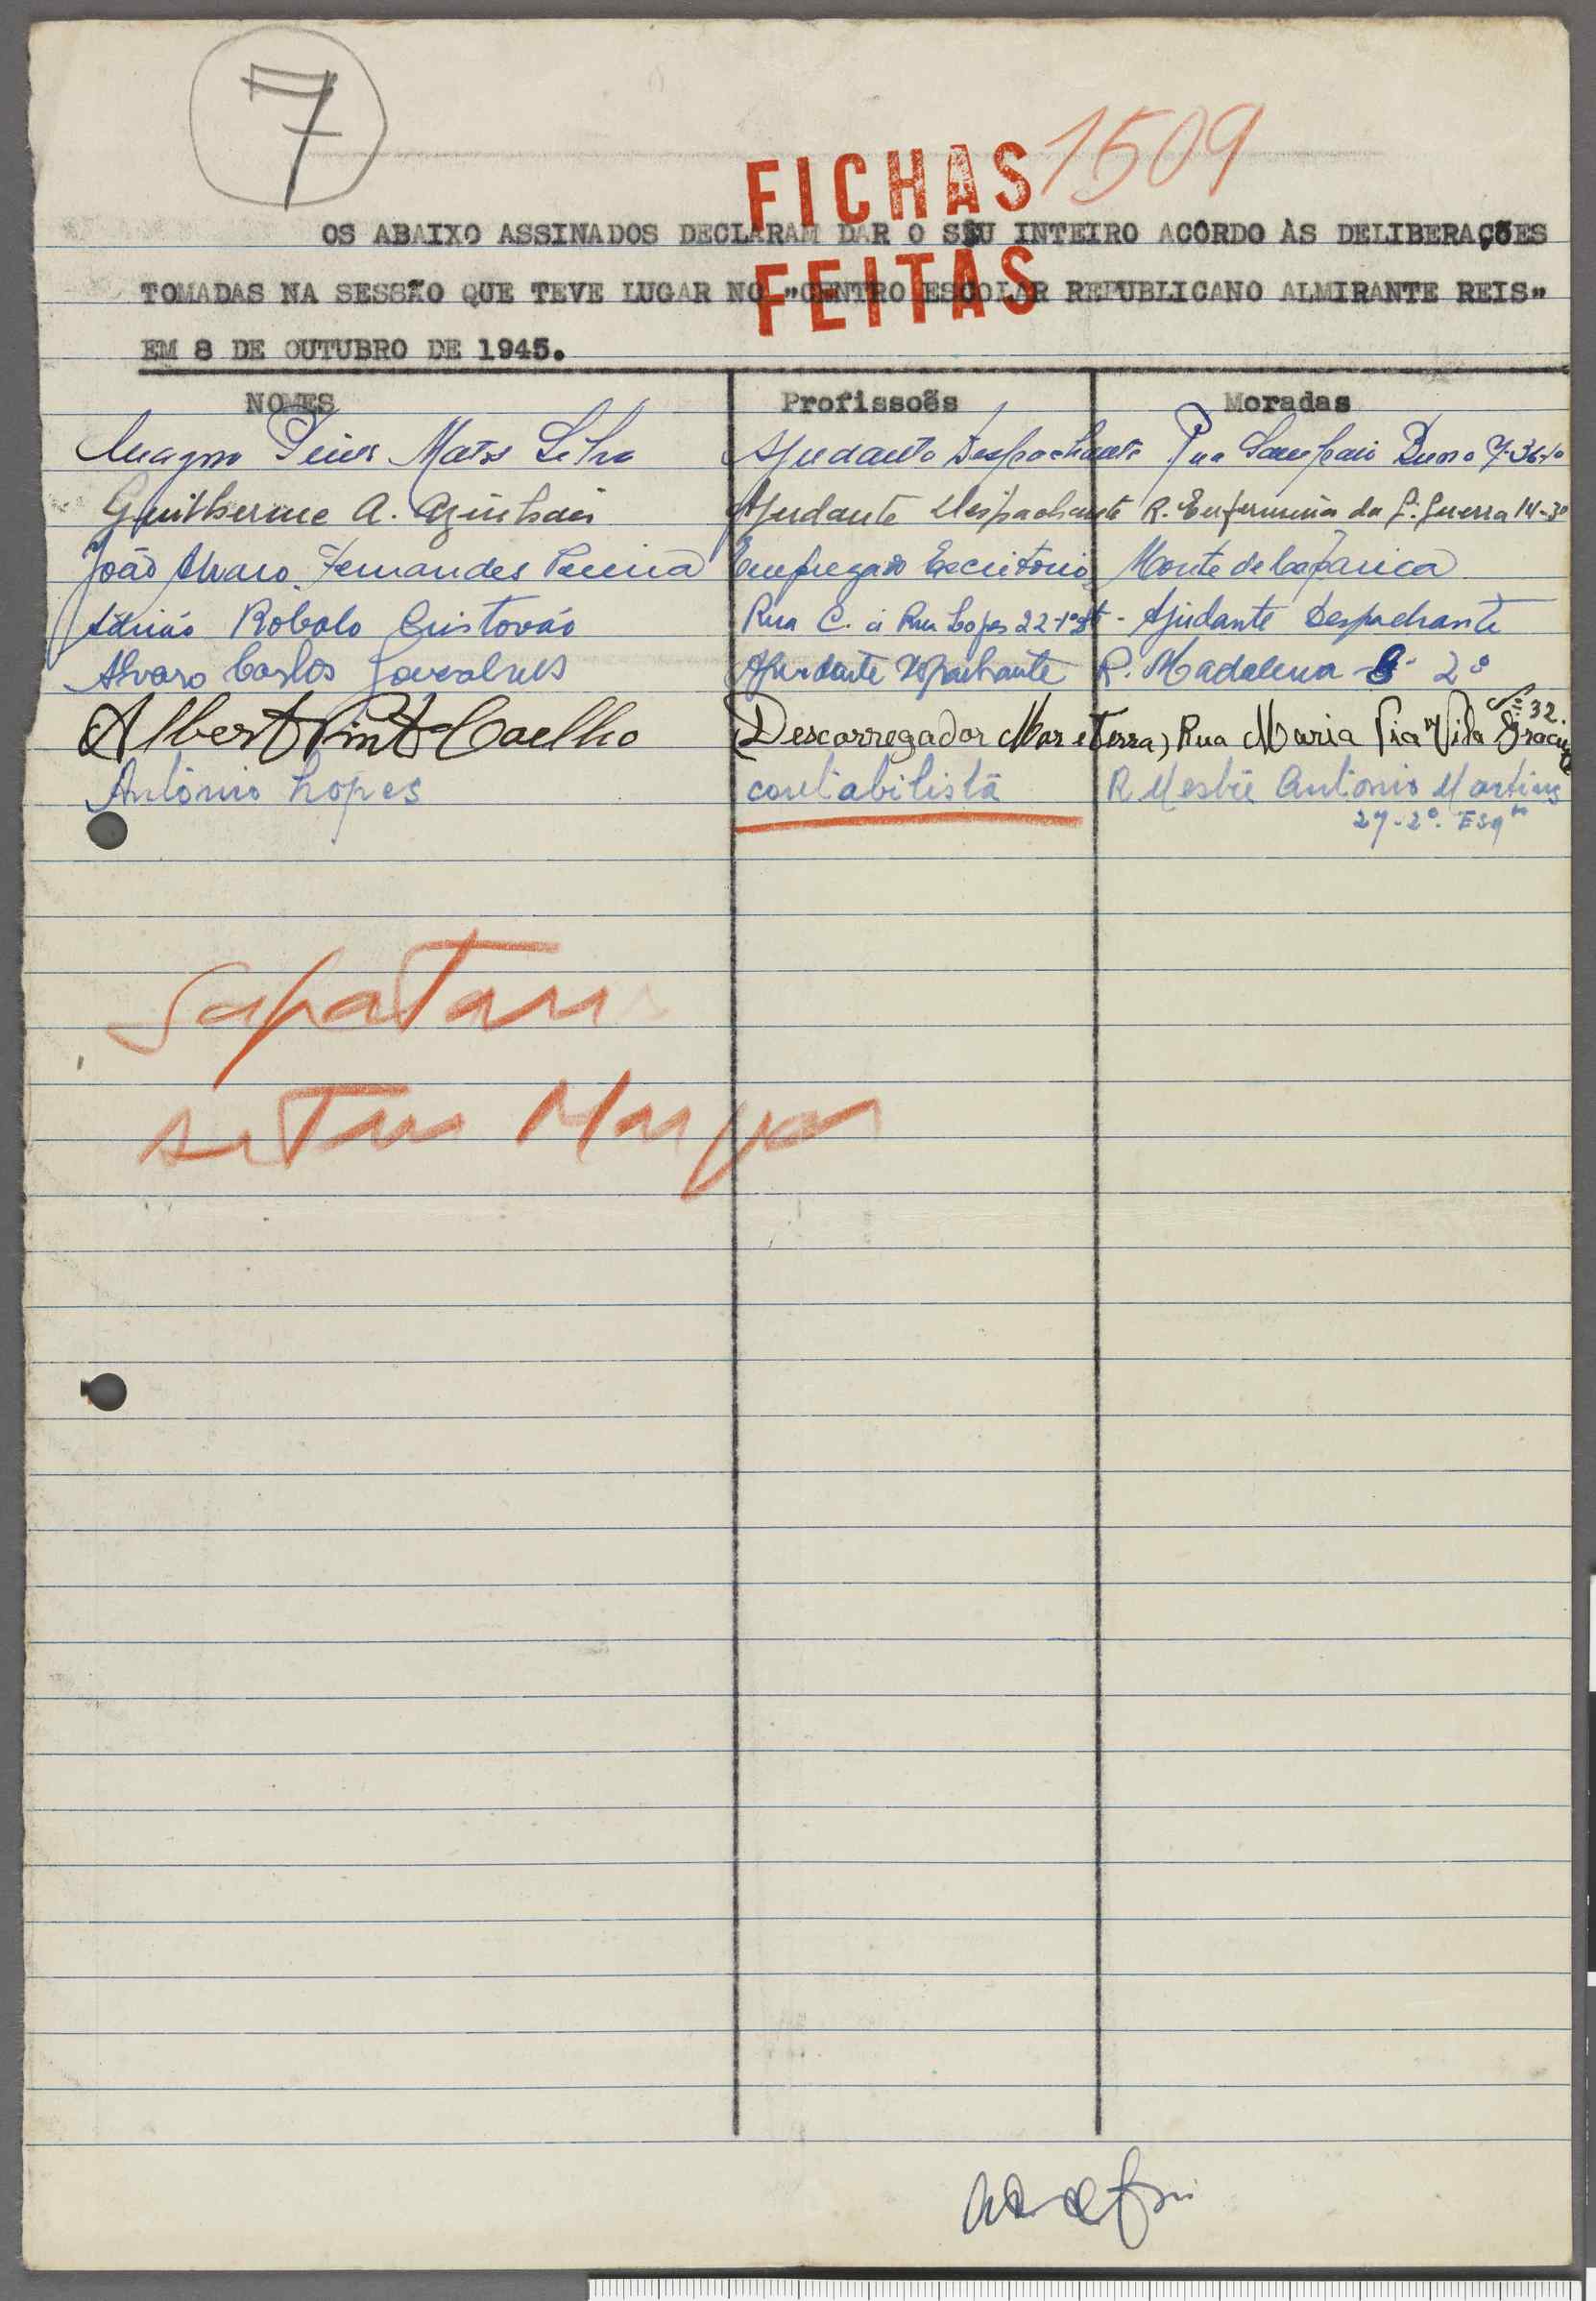 7
1509
FICHAS
FEITAS
OS ABAIXO ASSINADOS DECLARAM DAR O SÊU INTEIRO ACÔRDO ÀS DELIBERAÇÕES
TOMADAS NA SESSÃO QUE TEVE LUGAR NO "CENTRO ESCOLAR REPUBLICANO ALMIRANTE REIS"
EM 8 DE OUTUBRO DE 1945.
NOMES Profissoẽs Moradas
Matos Silva Ajudante Despachante Rua Sampaio Bruno
Guilherme A. Ajudante Despachante R. Enfermeiras da G. Guerra 14-3º
João Alvaro Fernandes Empregado Escritorio Monte de Caparica
Adrião Robalo Cristovão Rua C. à Rua Lopes 22-1º - Ajudante Despachante
Alvaro Carlos Gonçalves Ajudante Despachante R. Madalena 2º
Alberto Pinto Coelho Descarregador Mar e Terra) Rua Maria Pia Vila 32.
António Lopes contabilista R Mestre Antonio Martins
27-2º. Esqº